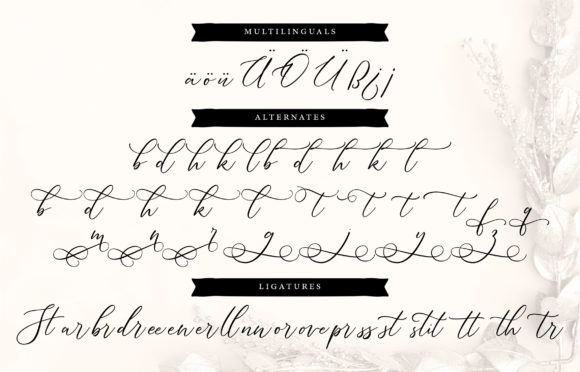 MULTILINGUALS
ä ö ü Ä Ö Ü ß ¿ ¡
ALTERNATES
b d h k l b d h k t
b d h k l t t t t f q
m n r g j y z
LIGATURES
St ar br dr ee en er ll nn or ov e pr ss st sti tt th tr